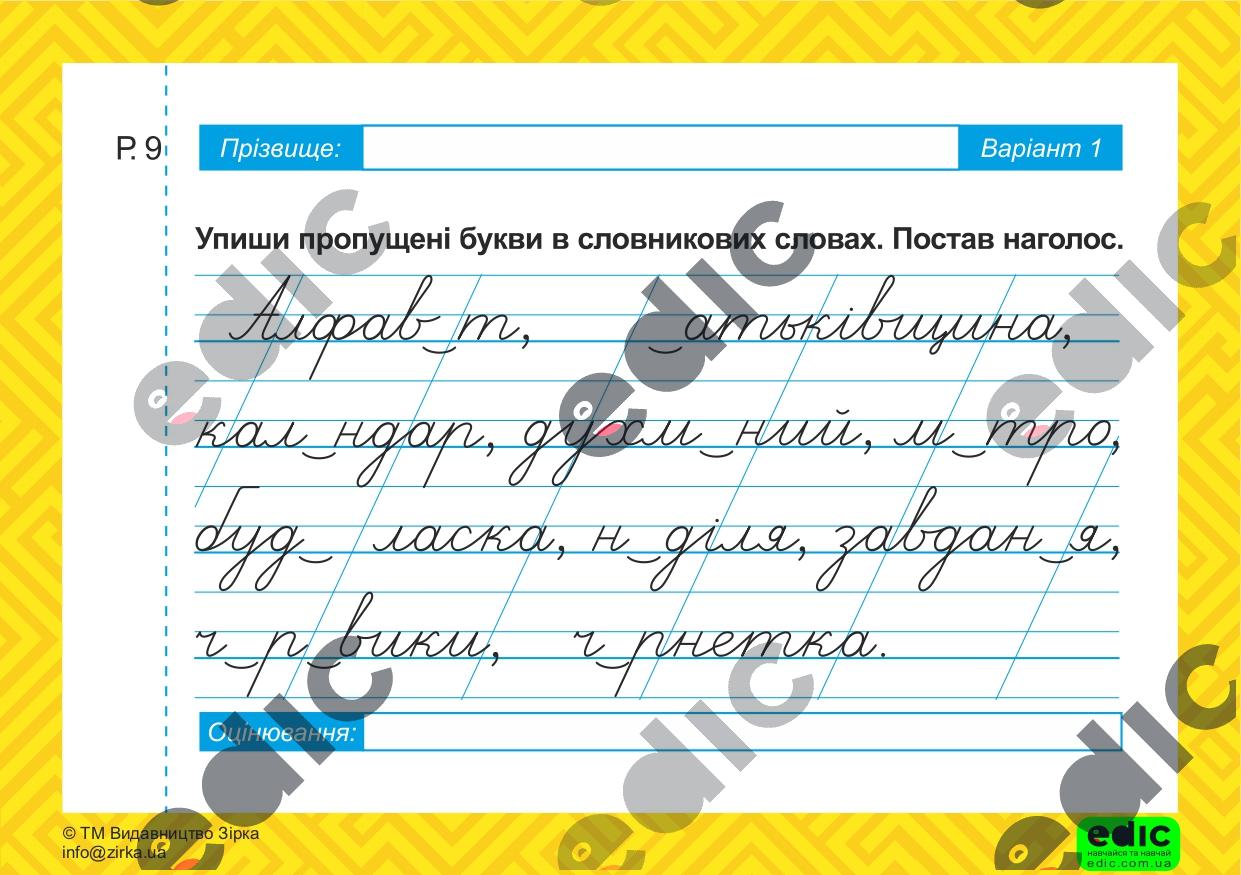 Р. 9
Прізвище:
Варіант 1
Упиши пропущені букви в словникових словах. Постав наголос.
Алфав_т, _атьківщина,
кал_ндар, духм_ний, м_тро,
буд_ ласка, н_діля, завдан_я,
ч_р_вики, ч_рнетка.
Оцінювання:
© ТМ Видавництво Зірка
info@zirka.ua
edic
навчайся та навчай
edic.com.ua
edic
edic
edic